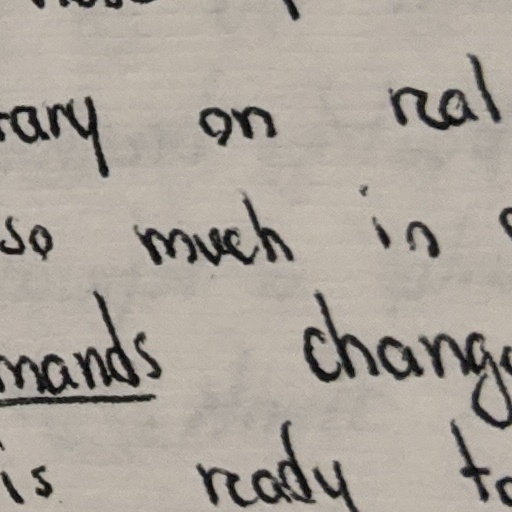 rary on real
so much in
mands chang
is ready to